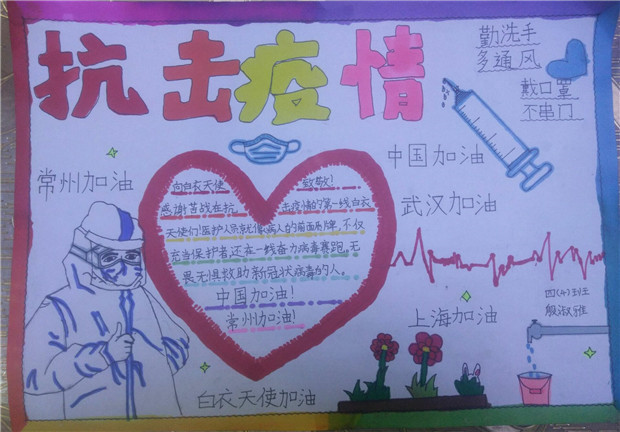 抗击疫情
勤洗手
多通风
戴口罩
不串门
中国加油
常州加油
武汉加油
向白衣天使 致敬!
感谢苦战在抗击疫情的第一线白衣
天使们!医护人员就像病人的前面盾牌,不仅
充当保护者还在一线奋力病毒赛跑,无
畏无惧救助新冠状病毒的人。
中国加油!
常州加油!
上海加油
四(4)班
殷淑雅
白衣天使加油